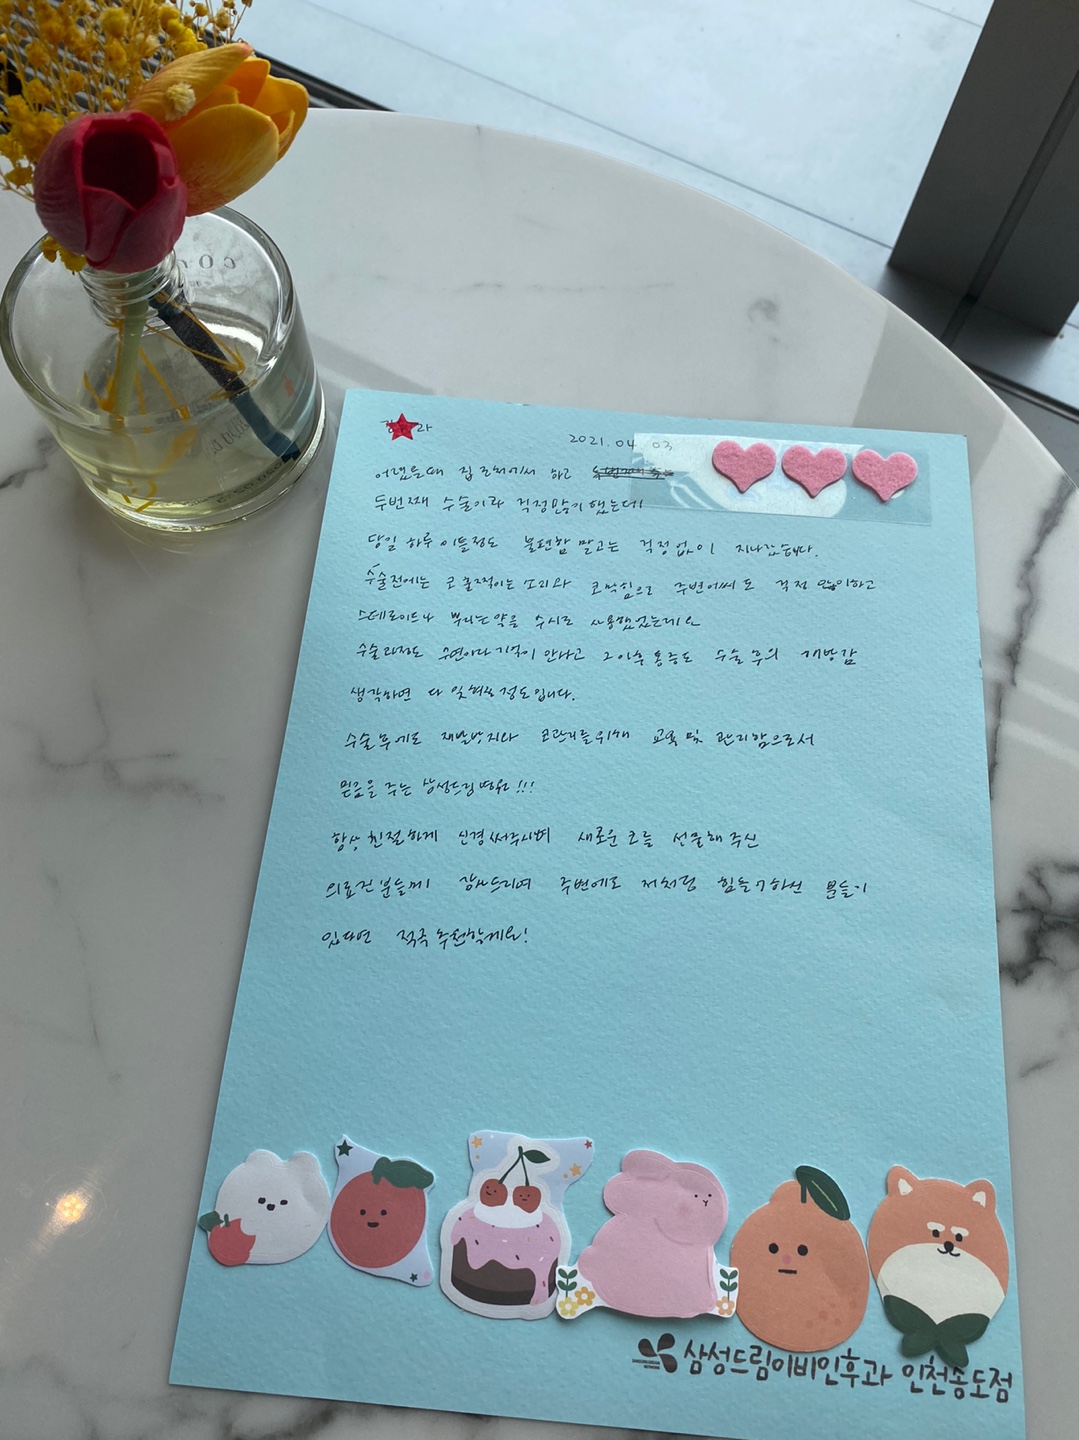 라
2021. 04. 03
어렸을때 집 근처에서 하고
두번째 수술이라 걱정많이 했는데
당일 하루 이틀정도 불편함 말고는 걱정없이 지나갔습니다.
수술전에는 코 훌쩍이는 소리와 코막힘으로 주변에서도 걱정 많이하고
스테로이드나 뿌리는약을 수시로 사용했었는데요
수술과정도 수면이라 기억이 안나고 그 이후 통증도 수술 후의 개방감
생각하면 다 잊혀질 정도입니다.
수술 후에도 재발방지와 코관리를위해 교육 및 관리함으로서
믿음을 주는 삼성드림 !!!
항상 친절하게 신경써주시며 새로운 코를 선물해 주신
의료진분들께 감사드리며 주변에도 저처럼 힘들어하신 분들이
있다면 적극추천할게요!
삼성드림이비인후과 인천송도점